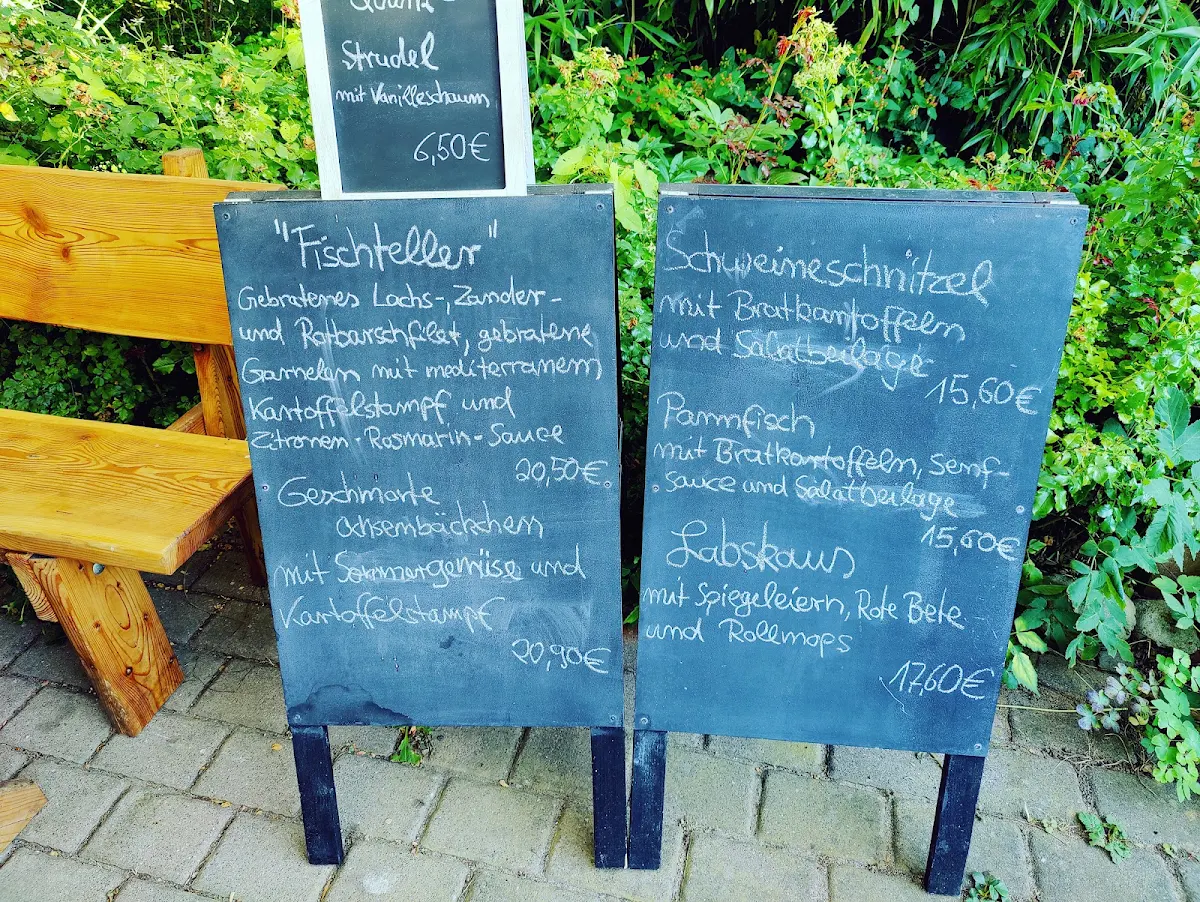 Strudel
mit Vanilleschaum
6,50€
"Fischteller"
Gebratenes Lachs-, Zander-
und Rotbarschfilet, gebratene
Garnelen mit mediterranem
Kartoffelstampf und
Zitronen-Rosmarin-Sauce
20,50€
Geschmorte
Ochsenbäckchen
mit Sommergemüse und
Kartoffelstampf
20,90€
Schweineschnitzel
mit Bratkartoffeln
und Salatbeilage
15,60€
Pannfisch
mit Bratkartoffeln, Senf-
sauce und Salatbeilage
15,60€
Labskaus
mit Spiegeleiern, Rote Bete
und Rollmops
17,60€